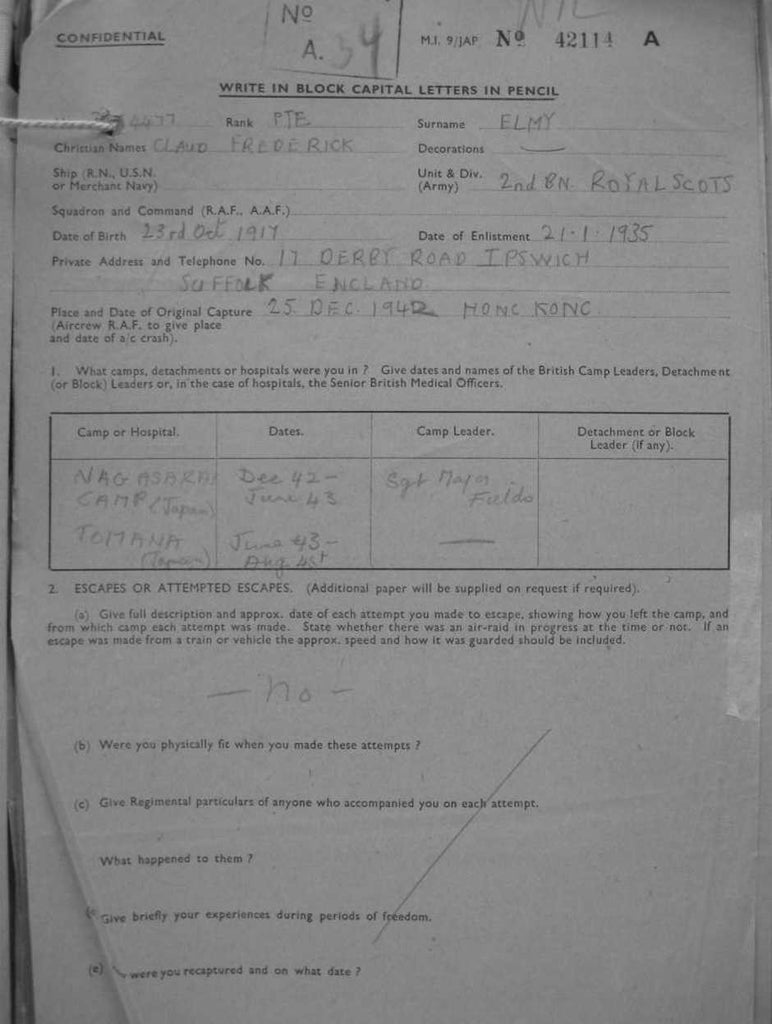 NO
A. 34
NIL
CONFIDENTIAL
M.I. 9/JAP No 42114 A
WRITE IN BLOCK CAPITAL LETTERS IN PENCIL
4477 Rank PTE Surname ELMY
Christian Names CLAUD FREDERICK Decorations —
Ship (R.N., U.S.N. or Merchant Navy)
Unit & Div. (Army) 2nd BN. ROYAL SCOTS
Squadron and Command (R.A.F., A.A.F.)
Date of Birth 23rd Oct 1917 Date of Enlistment 21.1.1935
Private Address and Telephone No. 17 DERBY ROAD IPSWICH
SUFFOLK ENGLAND
Place and Date of Original Capture 25 DEC. 1942 HONG KONG.
(Aircrew R.A.F. to give place
and date of a/c crash).
1. What camps, detachments or hospitals were you in ? Give dates and names of the British Camp Leaders, Detachment
(or Block) Leaders or, in the case of hospitals, the Senior British Medical Officers.
Camp or Hospital. Dates. Camp Leader. Detachment or Block
Leader (if any).
NAGASAKA Dec 42 – Sgt Major
CAMP (Japan) June 43 Fields
TOMANA June 43 – —
(Japan) Aug 45
2. ESCAPES OR ATTEMPTED ESCAPES. (Additional paper will be supplied on request if required).
(a) Give full description and approx. date of each attempt you made to escape, showing how you left the camp, and
from which camp each attempt was made. State whether there was an air-raid in progress at the time or not. If an
escape was made from a train or vehicle the approx. speed and how it was guarded should be included.
— no —
(b) Were you physically fit when you made these attempts ?
(c) Give Regimental particulars of anyone who accompanied you on each attempt.
What happened to them ?
Give briefly your experiences during periods of freedom.
(e) were you recaptured and on what date ?